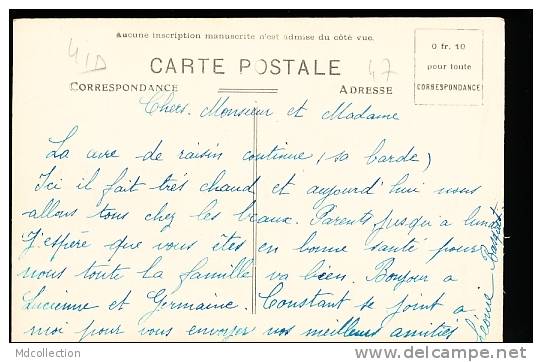 Aucune inscription manuscrite n'est admise du côté vue.
41D
47
CARTE POSTALE
0 fr. 10
pour toute
CORRESPONDANCE
CORRESPONDANCE
ADRESSE
Chers. Monsieur et Madame
La cure de raisin continue, (sa barde)
Ici il fait très chaud et aujourd'hui nous
allons tous chez les beaux. Parents jusqu'a lundi
J'espère que vous êtes en bonne santé pour
nous toute la famille va bien. Bonjour a
Lucienne et Germaine. Constant se joint a
moi pour vous envoyer nos meilleurs amitiés
Léonie
Mdcollection
http://www.delcampe.net